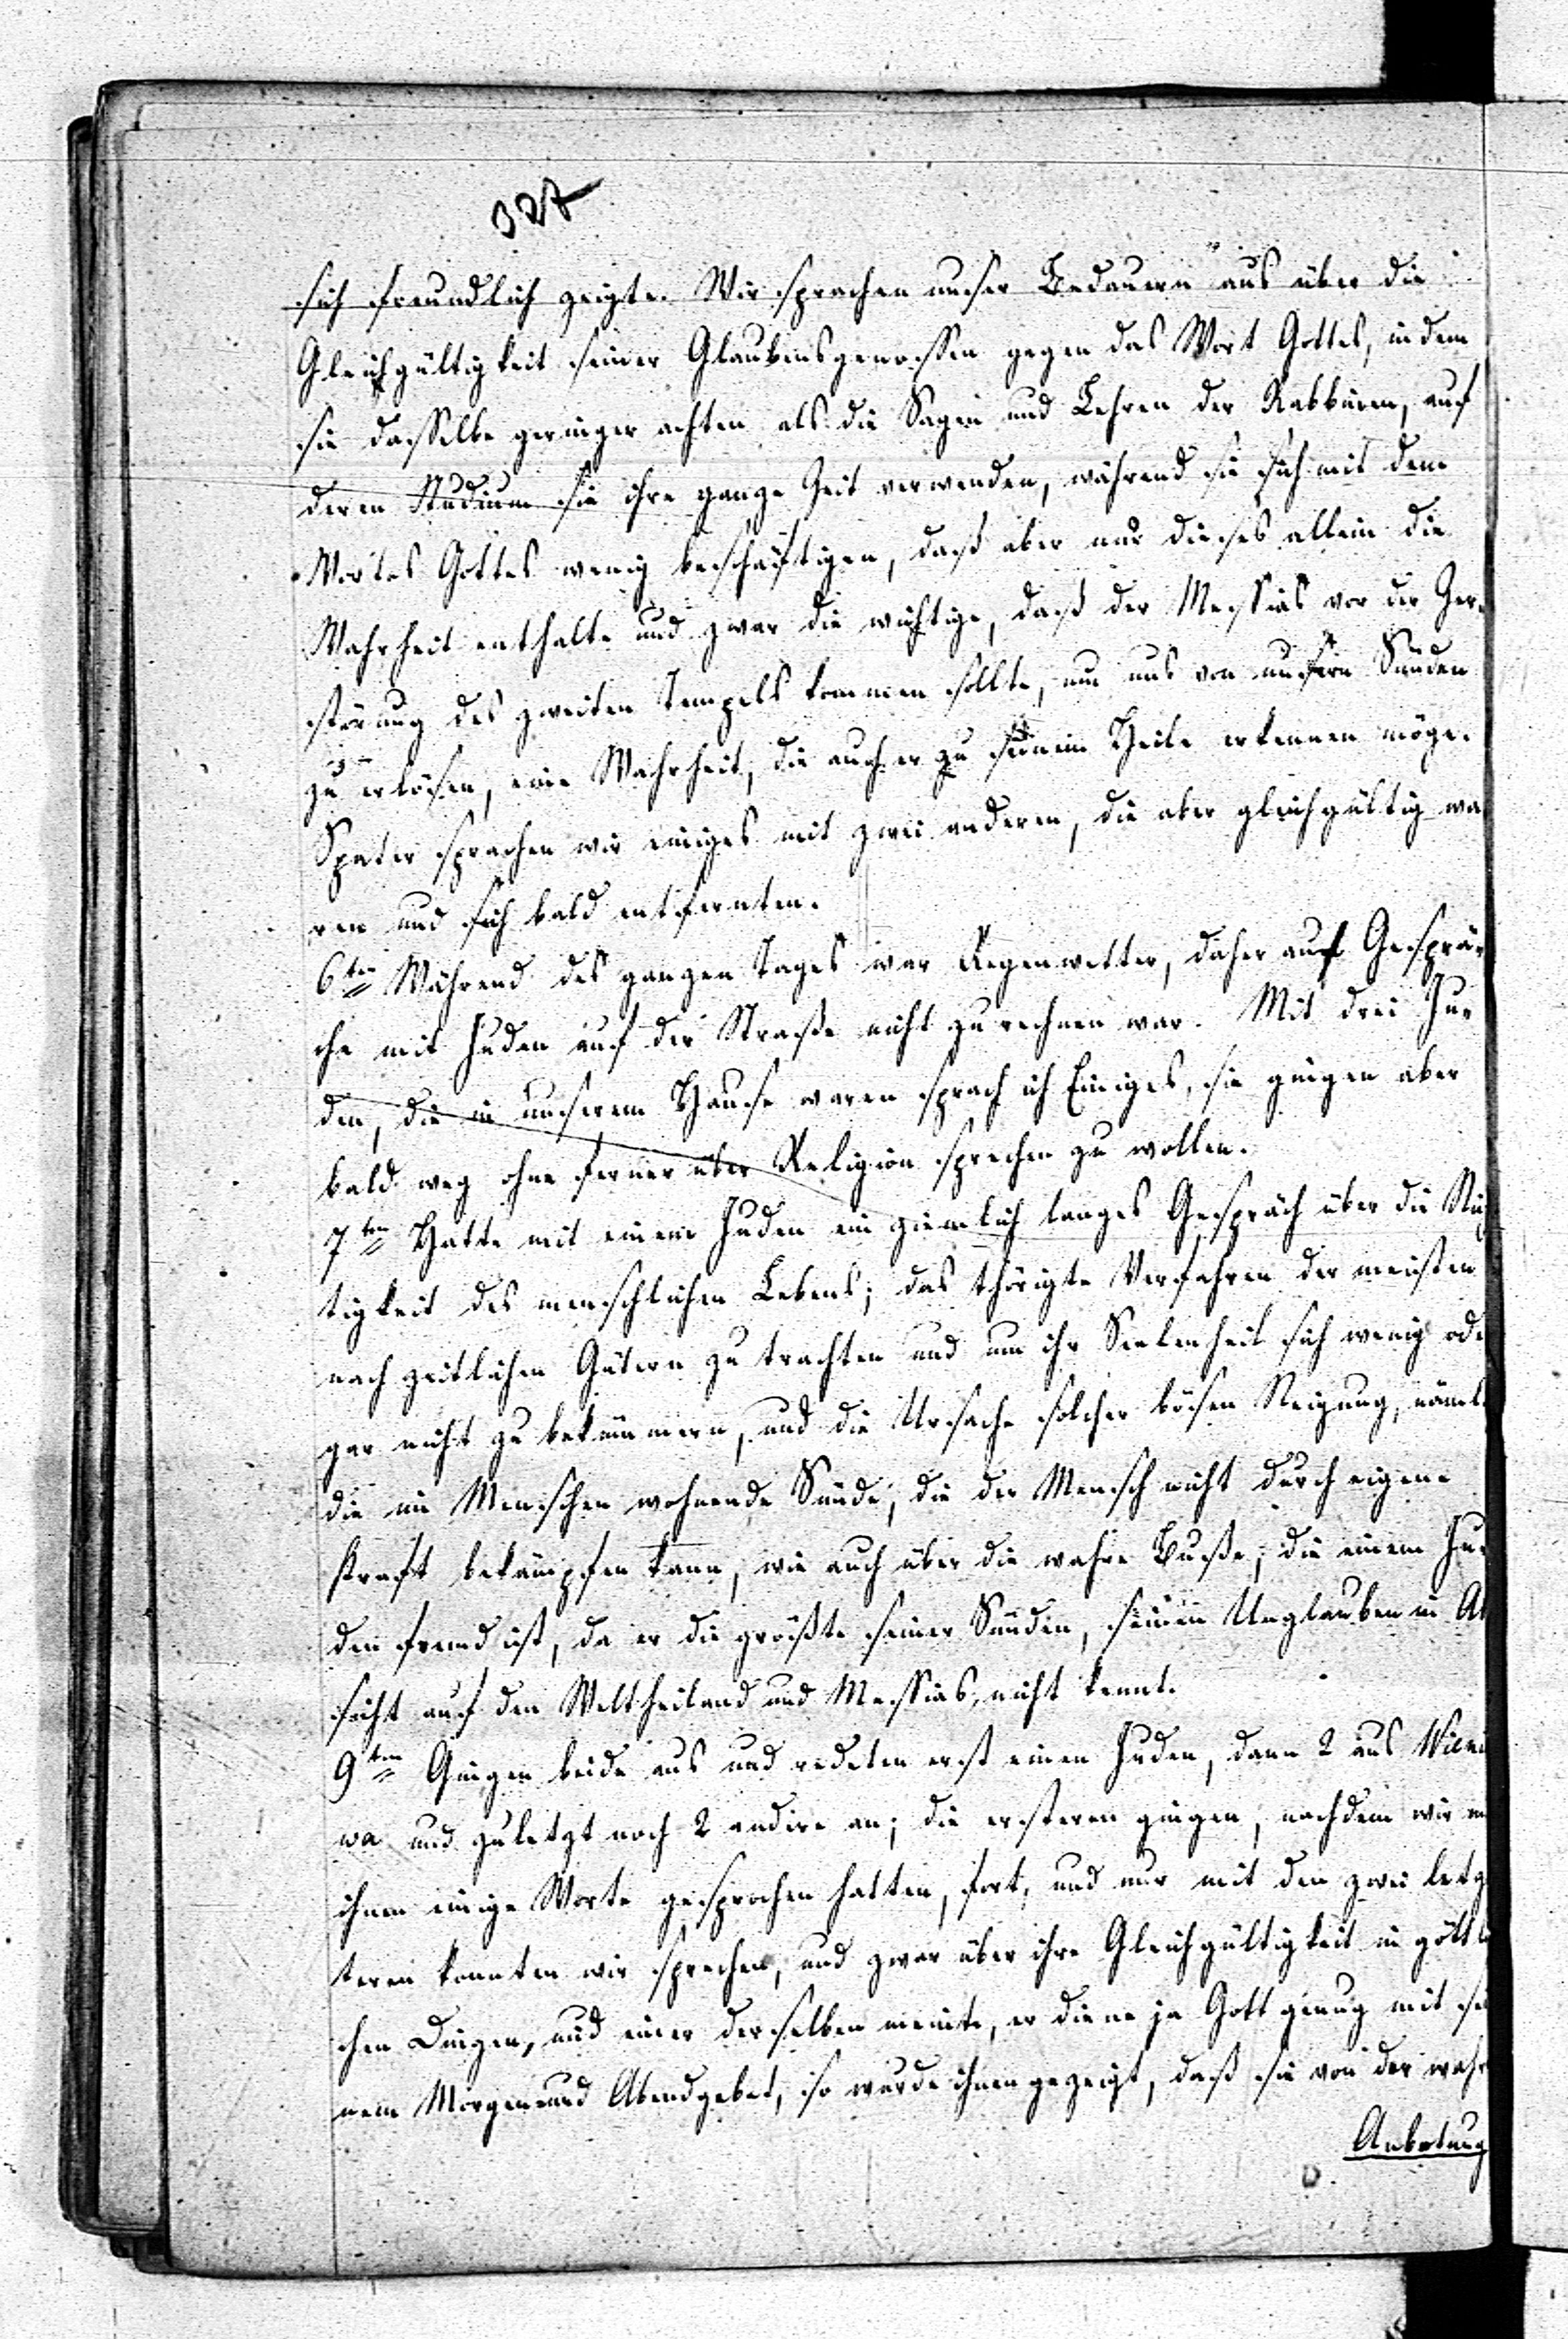 327
sich freundlich zeigte. Wir sprachen unser Bedauern aus über die
Gleichgültigkeit seiner Glaubensgenossen gegen das Wort Gottes, indem
sie dasselbe geringer achten als die Sagen und Lehren der Rabbinen, auf
deren Studium sie ihre ganze Zeit verwenden, während sie sich mit dem
Wortes Gottes wenig beschäftigen, daß aber nur dieses allein die
Wahrheit enthalte und zwar die wichtige, daß der Messias vor der Zer-
störung des zweiten Tempels kommen sollte, um uns von unsern Sünden
zu erlösen, eine Wahrheit, die auch er zu seinem Heile erkennen möge.
Später sprachen wir einiges mit zwei anderen, die aber gleichgültig wa
ren und sich bald entfernten.
6ten Während des ganzen Tages war Regenwetter, daher auf Gesprä-
che mit Juden auf der Straße nicht zu rechnen war. Mit drei Ju-
den, die in unserem Hause waren sprach ich Einiges, sie gingen aber
bald weg ohne ferner über Religion sprechen zu wollen.
7ten Hatte mit einem Juden ein ziemlich langes Gespräch über die Nich
tigkeit des menschlichen Lebens; das thörigte Verfahren der meisten
nach zeitlichen Gütern zu trachten und um ihr Seelenheil sich wenig ode
gar nicht zu bekümmern, und die Ursache solcher bösen Neigung, näml
die im Menschen wohnende Sünde, die der Mensch nicht durch eigene
Kraft bekämpfen kann, wie auch über die wahre Buße, die einem Ju-
den fremd ist, da er die größte seiner Sünden, seinen Unglauben in Ab
sicht auf den Weltheiland und Messias, nicht kennt.
9ten Gingen beide aus und redeten erst einen Juden, dann 2 aus
wa und zuletzt noch 2 andere an; die ersteren gingen, nachdem wir m
ihnen einige Worte gesprochen hatten, fort, und nur mit den zwei letz
teren konnten wir sprechen, und zwar über ihre Gleichgültigkeit in göttli
chen Dingen, und einer derselben meinte, er diene ja Gott genug mit sei
nem Morgen und Abendgebet, so wurde ihnen gezeigt, daß sie von der wahr
Anbetung